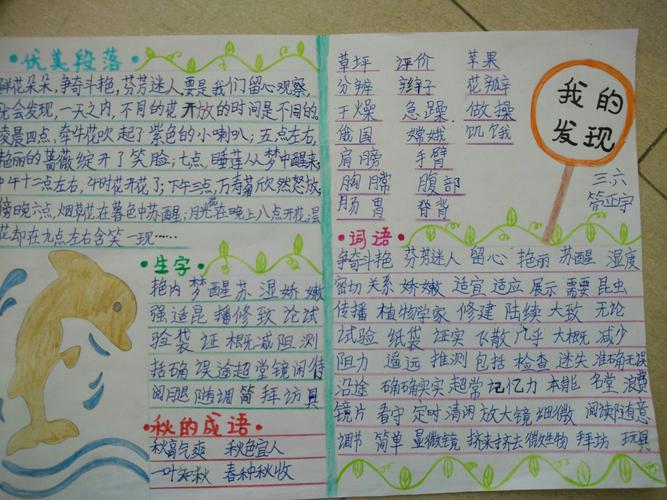 优美段落
鲜花朵朵,争奇斗艳,芬芳迷人。要是我们留心观察,
就会发现,一天之内,不同的花开放的时间是不同的。
凌晨四点,牵牛花吹起了紫色的小喇叭;五点左右,
艳丽的蔷薇绽开了笑脸;七点,睡莲从梦中醒来;
中午十二点左右,午时花开花了;下午三点,万寿菊欣然怒放;
傍晚六点,烟草花在暮色中苏醒;月光花在晚上八点开花;昙
花却在九点左右含笑一现……
生字
艳内梦醒苏湿娇嫩
强适昆播修致论试
验袋证概减阻测
括确误途超堂镜闲待
阅腿随调简拜访具
秋的成语
秋高气爽 秋色宜人
一叶知秋 春种秋收
草坪 评价 苹果
分辨 辫子 花瓣
干燥 急躁 做操
俄国 嫦娥 饥饿
肩膀 手臂
胸膛 腹部
肠胃 脊背
我的
发现
三六
简正宇
词语
争奇斗艳 芬芳迷人 留心 艳丽 苏醒 湿度
密切关系 娇嫩 适宜 适应 展示 需要 昆虫
传播 植物学家 修建 陆续 大致 无论
试验 纸袋 证实 飞散 几乎 大概 减少
阻力 遥远 推测 包括 检查 迷失 准确无误
沿途 确确实实 超常 记忆力 本能 名堂 浪费
镜片 看守 定时 清闲 放大镜 细微 阅读 随意
调节 简单 显微镜 挠来挠去 微生物 拜访 玩具